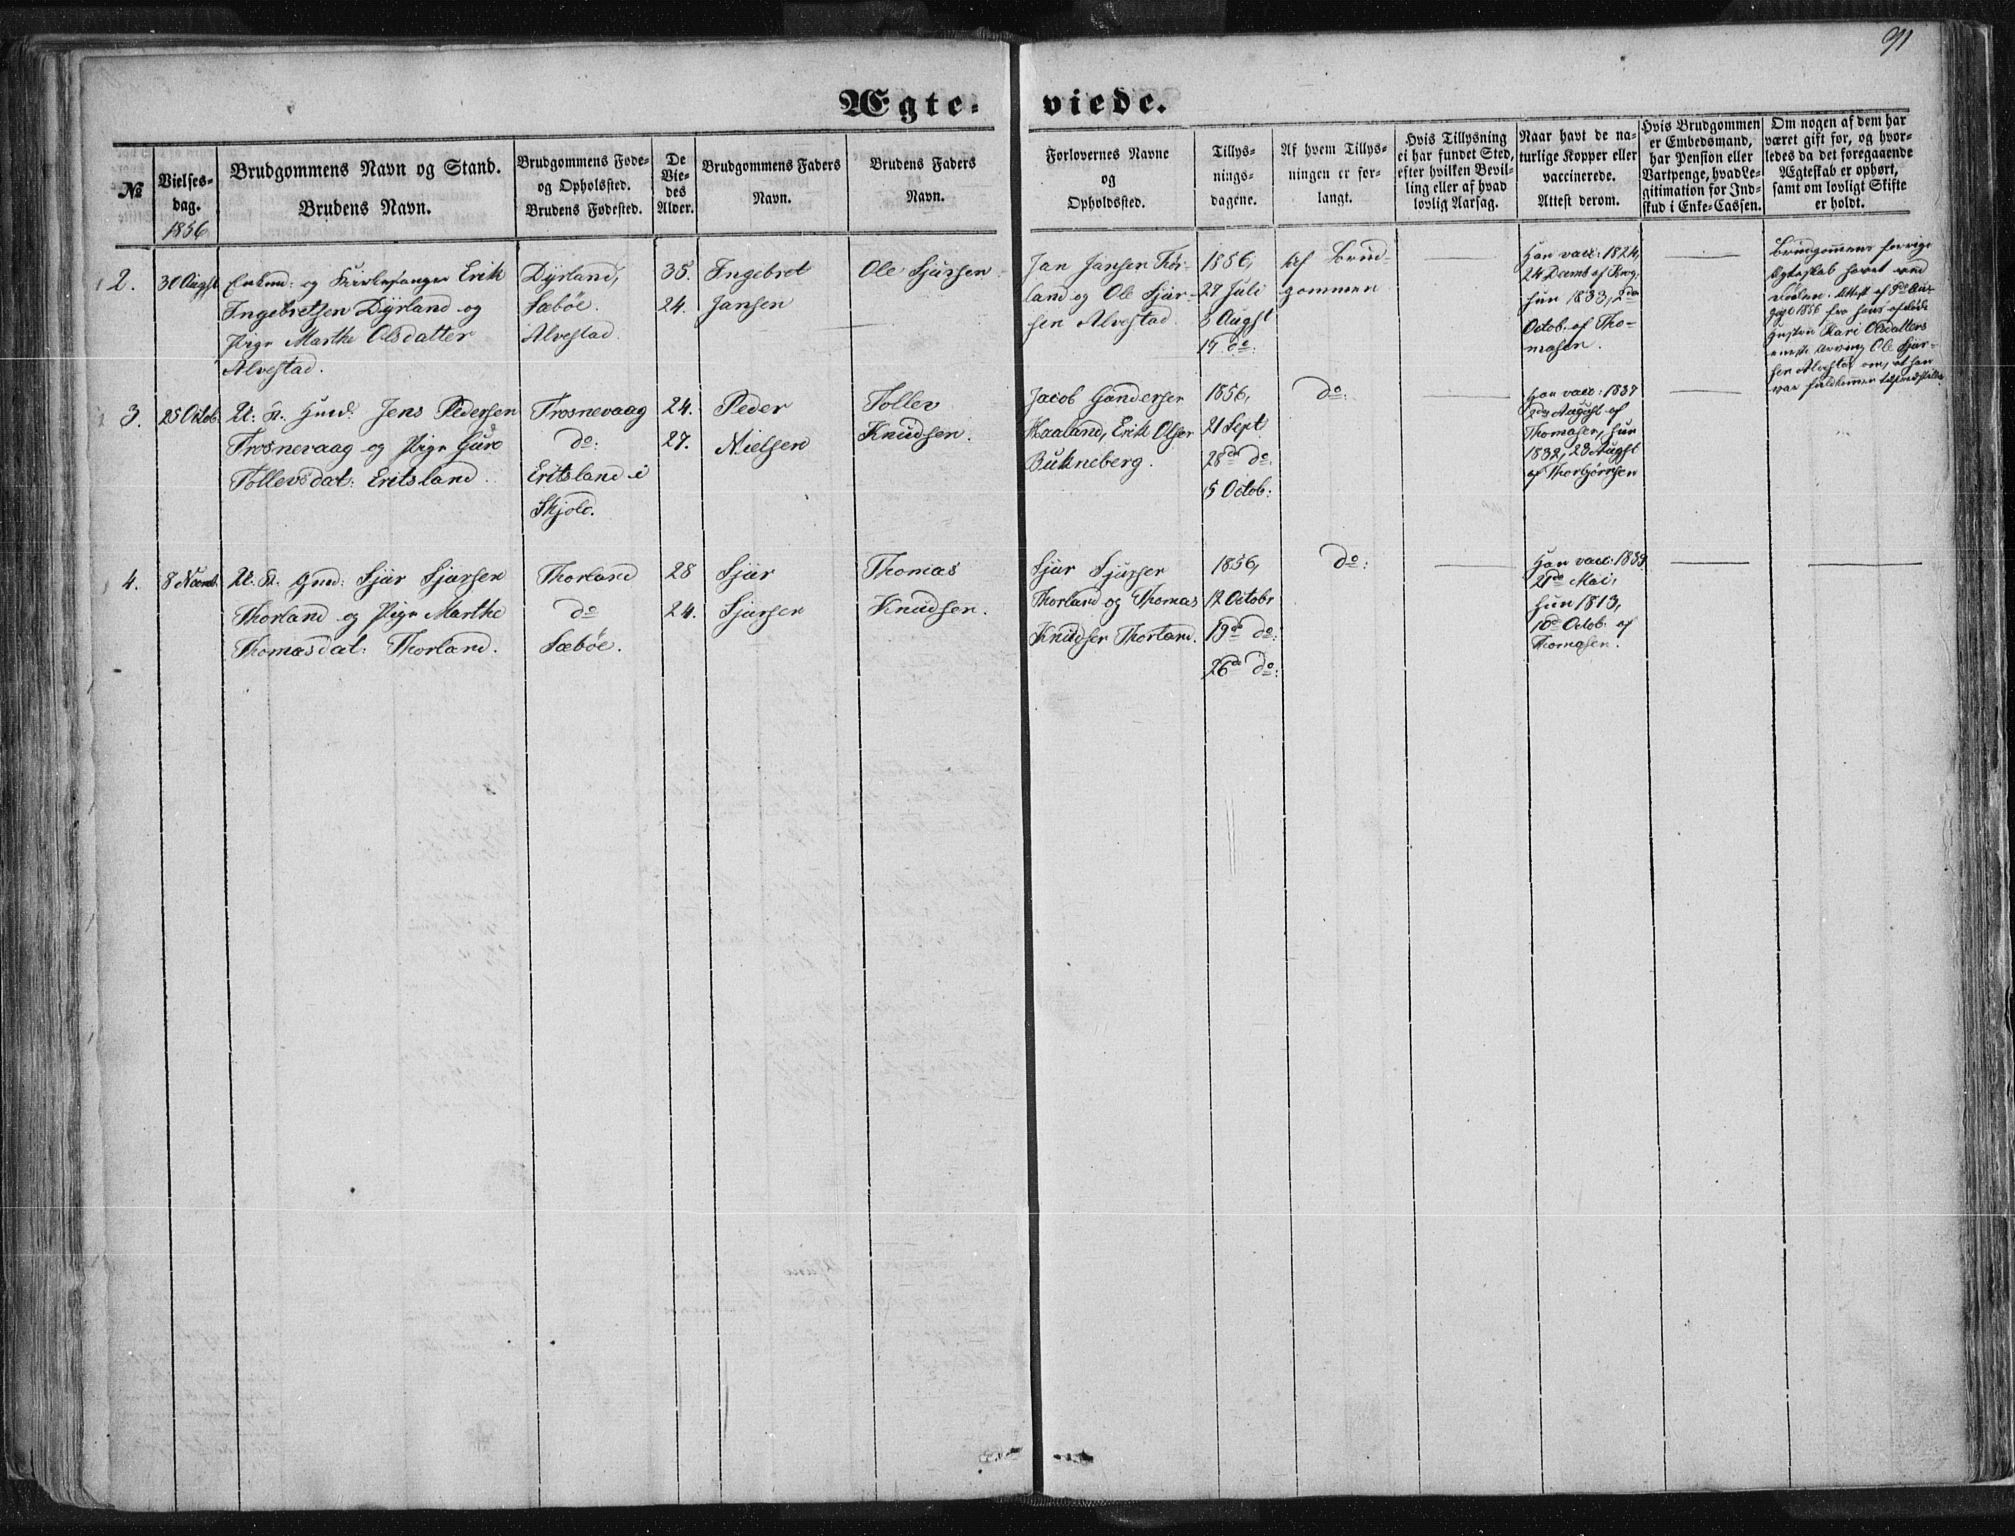 91
Ægte- viede.
No
Vielses-
dag.
1856
Brudgommens Navn og Stand.
Brudens Navn.
Brudgommens Føde-
og Opholssted.
Brudens Fødested.
De
Vie-
des
Alder.
Brudgommens Faders
Navn.
Brudens Faders
Navn.
Forlovernes Navne
og
Opholdssted.
Tillys-
nings-
dagene.
Af hvem Tillys-
ningen er for-
langt.
Hvis Tillysning
ei har fundet Sted,
efter hvilken Bevil-
ling eller af hvad
lovlig Aarsag.
Naar havt de na-
turlige Kopper eller
vaccinerede.
Attest derom.
Hvis Brudgommen
er Embedsmand,
har Pension eller
Vartpenge, hvad Le-
gitimation for Ind-
skud i Enke-Cassen.
Om nogen af dem har
været gift for, og hvor-
ledes da det foregaaende
Ægteskab er ophørt,
samt om lovligt Skifte
er holdt.
2.
30 Augst
Enkmd: og Kirkesanger Erik
Ingebretsen Dyrland og
Pige Marthe Olsdatter
Alvestad.
Dyrland,
Sæbøe.
Alvestad.
35.
24.
Ingebret
Jansen
Ole Sjursen
Jan Jansen Tor-
land og Ole Sjur-
sen Alvestad
1856,
27 Juli
3 Augst
17 do:
Af Brud-
gommen
Han vacc: 1824,
24 Decmb af Berg,
hun 1833, 2den
Octob. af Tho-
masen.
Brudgommens forrige
Ægteskab hævet ved
Døden. Attest af 9d Au-
gust 1856 fra hans afdøde
Hustru Kari Olsdatters
eneste Arving Ole Sjur-
sen Alvestad om, at han
var fuldkommen tilfredsstillet
3.
25 Octob.
U: K. Gmd: Jens Pedersen
Trosnevaag og Pige Guro
Tollevsdat: Eritsland.
Trosnevaag
do:
Eritsland i
Skjold.
24.
27.
Peder
Nielsen
Tollev
Knudsen.
Jacob Gundersen
Haaland, Erik Olsen
Bukneberg.
1856,
21 Sept
28de do:
5 Octob:
do:
Han vacc: 1837
2den August af
Thomasen, hun
1832, 28 Augst
af Thorbjørnsen
4.
8 Novmb.
U. K. Gmd: Sjur Sjursen
Thorland og Pige Marthe
Thomasdat: Thorland.
Thorland
do
Sæbøe.
28
24.
Sjur
Sjursen
Thomas
Knudsen.
Sjur Sjursen
Thorland og Thomas
Knudsen Thorland.
1856,
12 Octobr
19de do:
26de do:
do:
Han vacc: 1833
21de Mai,
hun 1813,
16de Octob. af
Thomasen.